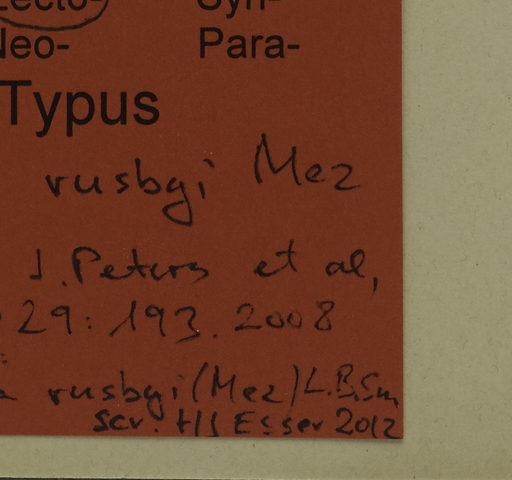 Lecto- Syn-
Neo- Para-
Typus
rusbyi Mez
J. Peters et al,
29: 193. 2008
rusbyi (Mez) L.B.Sm
scr. HJ Esser 2012